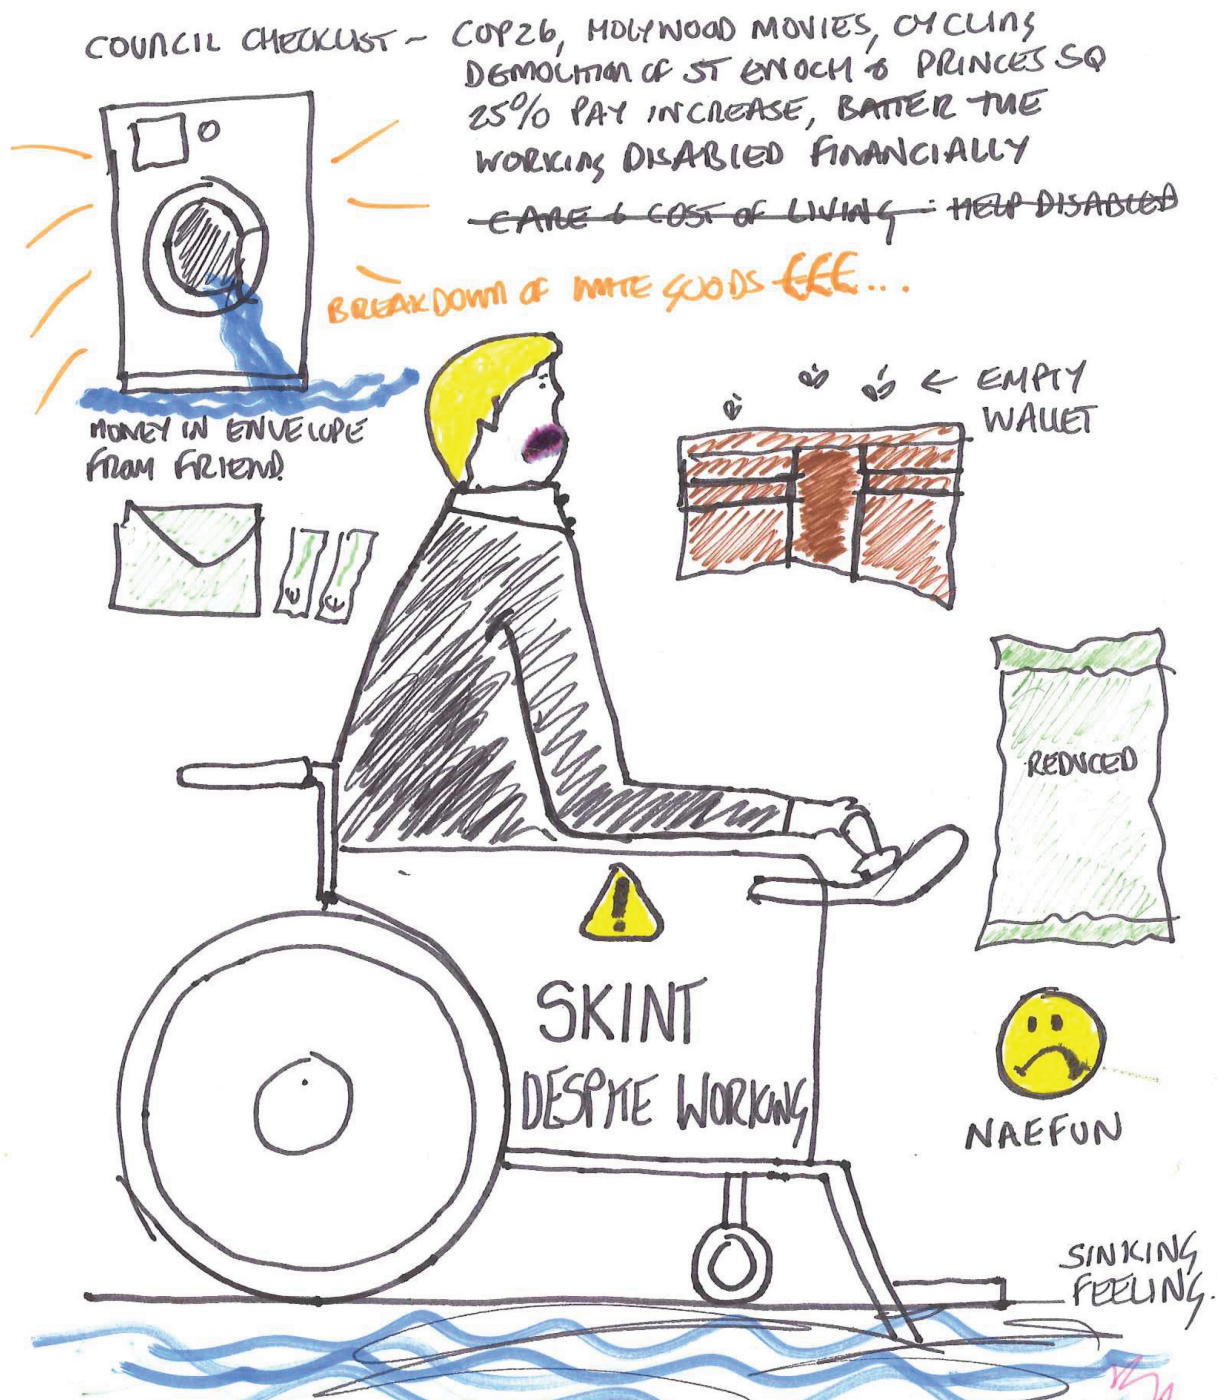 COUNCIL CHECKLIST ~ COP26, HOLYWOOD MOVIES, CYCLING
DEMOLITION OF ST ENOCH & PRINCES SQ
25% PAY INCREASE, BATTER THE
WORKING DISABLED FINANCIALLY
CARE & COST OF LIVING : HELP DISABLED
BREAKDOWN OF WHITE GOODS £££...
MONEY IN ENVELOPE
FROM FRIEND.
← EMPTY
WALLET
£ £
REDUCED
!
SKINT
DESPITE WORKING
NAEFUN
SINKING
FEELING.